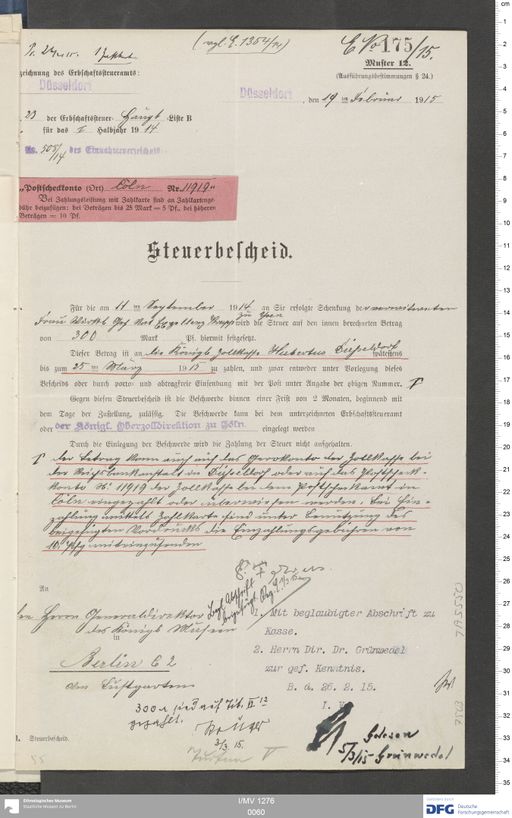 (vgl. E. 1354/14)
E No 175/15.
Muster 12.
(Ausführungsbestimmungen § 24.)
zeichnung des Erbschaftssteueramts:
Düsseldorf
Düsseldorf, den 19 ten Februar 1915
23 der Erbschaftssteuer Haupt Liste B
für das I Halbjahr 1914
No. 308/14 des Einnahmeverzeichnis
„Postscheckkonto (Ort) Cöln Nr. 11919"
Bei Zahlungsleistung mit Zahlkarte sind an Zahlkartenge-
bühr beizufügen: bei Beträgen bis 25 Mark = 5 Pf., bei höheren
Beträgen = 10 Pf.
Steuerbescheid.
Für die am 11 ten September 1914 an Sie erfolgte Schenkung der
Frau Wirkl. Geh. Rat Exzellenz Krupp wird die Steuer auf den innen berechneten Betrag
von 300 Mark Pf. hiermit festgesetzt.
Dieser Betrag ist an die Königl. Zollkasse Düsseldorf spätestens
bis zum 25 ten März 1915 zu zahlen, und zwar entweder unter Vorlegung dieses
Bescheids oder durch porto- und abtragfreie Einsendung mit der Post unter Angabe der obigen Nummer.
Gegen diesen Steuerbescheid ist die Beschwerde binnen einer Frist von 2 Monaten, beginnend mit
dem Tage der Zustellung, zulässig. Die Beschwerde kann bei dem unterzeichneten Erbschaftssteueramt
oder der Königl. Oberzolldirektion zu Cöln. eingelegt werden
Durch die Einlegung der Beschwerde wird die Zahlung der Steuer nicht aufgehalten.
der Betrag kann auch auf das Girokonto der Zollkasse bei
der Reichsbankanstalt in Düsseldorf oder auf das Postscheck-
konto No 11919 der Zollkasse bei dem Postscheckamt in
Cöln eingezahlt oder überwiesen werden. Bei Ein-
zahlung mittels Zahlkarte sind unter Benutzung des
beigefügten Vordrucks die Einzahlungsgebühren von
10 Pfg miteinzusenden
An
den Herrn Generaldirektor
der Königl. Museen
in
Berlin C 2
am Lustgarten
1. Mit beglaubigter Abschrift zu
Kasse.
2. Herrn Dir. Dr. Grünwedel
zur gef. Kenntnis.
B. d. 26. 2. 15.
300 M sind auf Tit. II 12
gezahlt.
3/3 15.
Gelesen
5/3/15 Grünwedel
Steuerbescheid.
55
Ethnologisches Museum
Staatliche Museen zu Berlin
I/MV 1276
0060
DFG Deutsche
Forschungsgemeinschaft